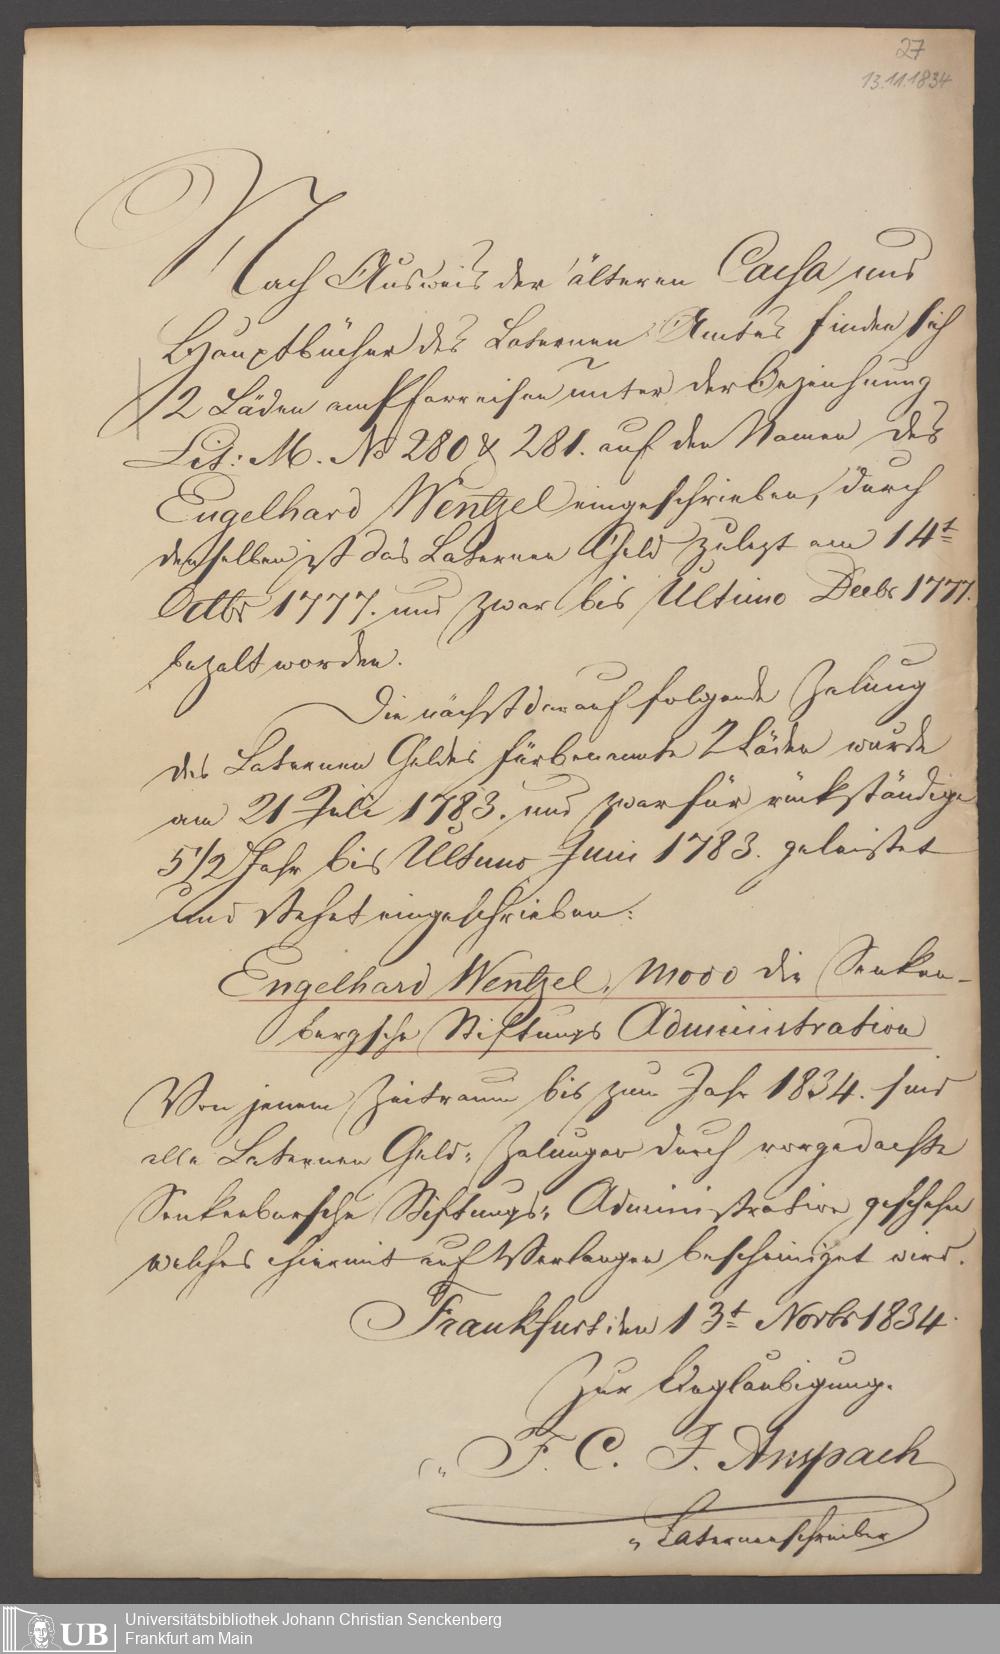 27
13.11.1834
Nach Ausweis der älteren Cassa und
Hauptbücher des Laternen Amtes finden sich
2 Läden am Pfarreisen unter der Bezeichnung
Lit: M. No 280 & 281. auf den Namen des
Engelhard Wentzel eingeschrieben, durch
denselben ist das Laternen Geld zulezt am 14t
Octbr 1777. und zwar bis Ultimo Decbr 1777.
bezalt worden.
Die nächst darauf folgende Zalung
des Laternen Geldes für benannte 2 Läden wurde
am 21 Juli 1783. und zwar für rückständige
5 1/2 Jahr bis Ultimo Juni 1783. geleistet
und stehet eingeschrieben:
Engelhard Wentzel, modo die Senken-
bergsche Stiftungs Administration
Von jenem Zeitraum bis zum Jahr 1834. sind
alle Laternen Geld: Zalungen durch vorgedachte
Senkenbersche Stiftungs: Administration geschehen
welches hiermit auf Verlangen bescheiniget wird.
Frankfurt den 13t Novbr 1834.
Zur Beglaubigung.
F. C. J. Anspach
Laternenschreiber
UB
Universitätsbibliothek Johann Christian Senckenberg
Frankfurt am Main